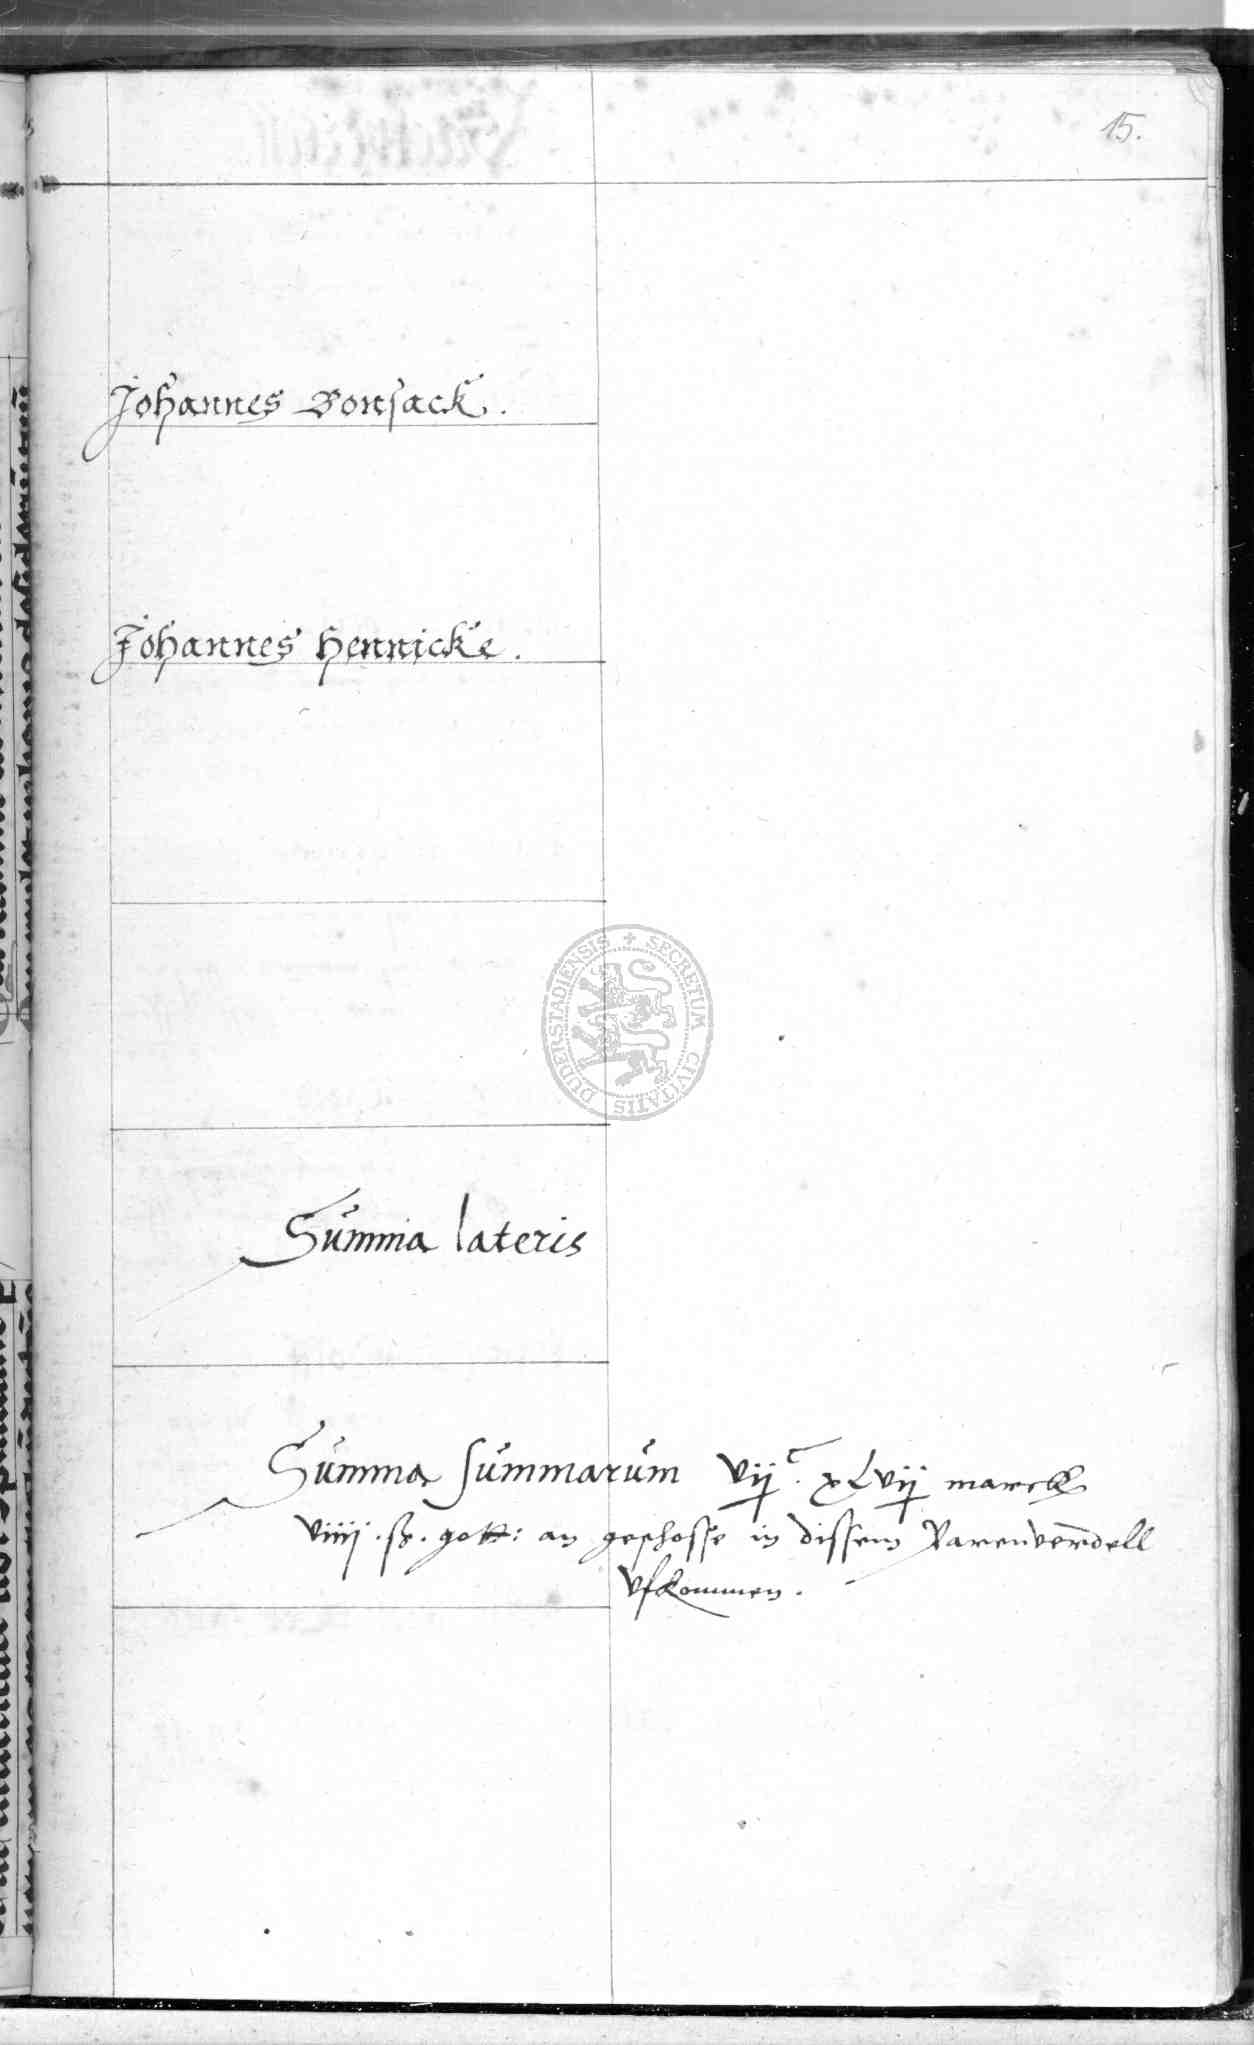 15.
Johannes Bonsack.
Johannes Hennicke.
SECRETUM CIVITATIS DUDERSTADIENSIS
Summa lateris
Summa summarum vij c. xLvij marck
viiij. gott: an geschosse in dissem verendell
vfkommen.